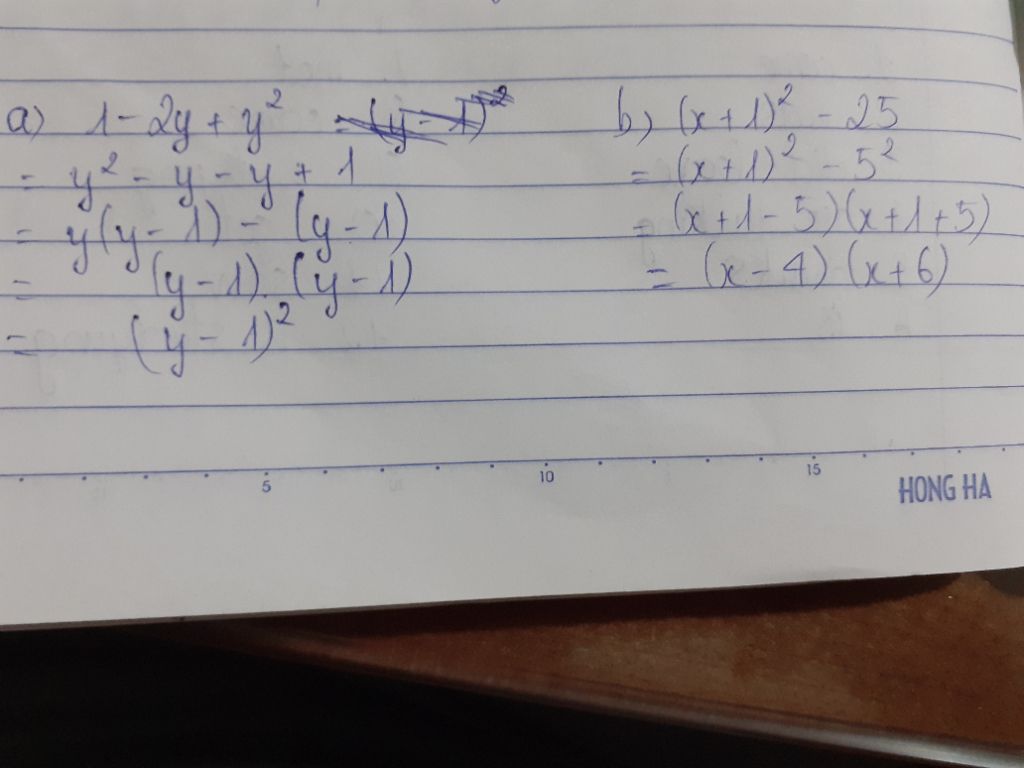 a) 1 - 2y + y² = (y - 1)²
= y² - y - y + 1
= y(y - 1) - (y - 1)
= (y - 1) (y - 1)
= (y - 1)²
b) (x + 1)² - 25
= (x + 1)² - 5²
= (x + 1 - 5)(x + 1 + 5)
= (x - 4) (x + 6)
5 10 15
HONG HA